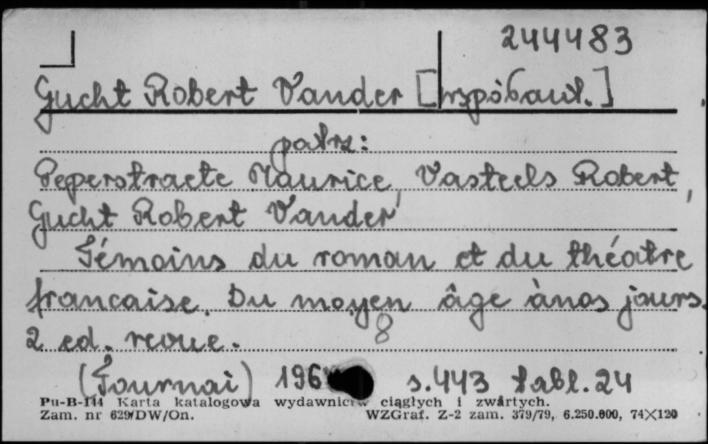 244483
Gucht Robert Vander [współaut.]
patrz:
Peperstraete Maurice, Vasteels Robert,
Gucht Robert Vander
Témoins du roman et du théatre
francaise. Du moyen âge ànos jours.
2 ed. revue.
8
(Tournai) 196 s. 443 tabl. 24
Pu-B-114 Karta katalogowa wydawnictw ciągłych i zwartych.
Zam. nr 629/DW/On. WZGraf. Z-2 zam. 379/79, 6.250.000, 74×120